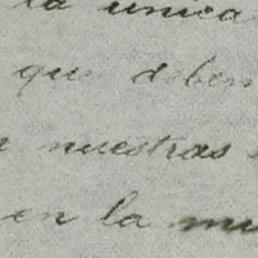 la unica
que deben
nuestras
en la